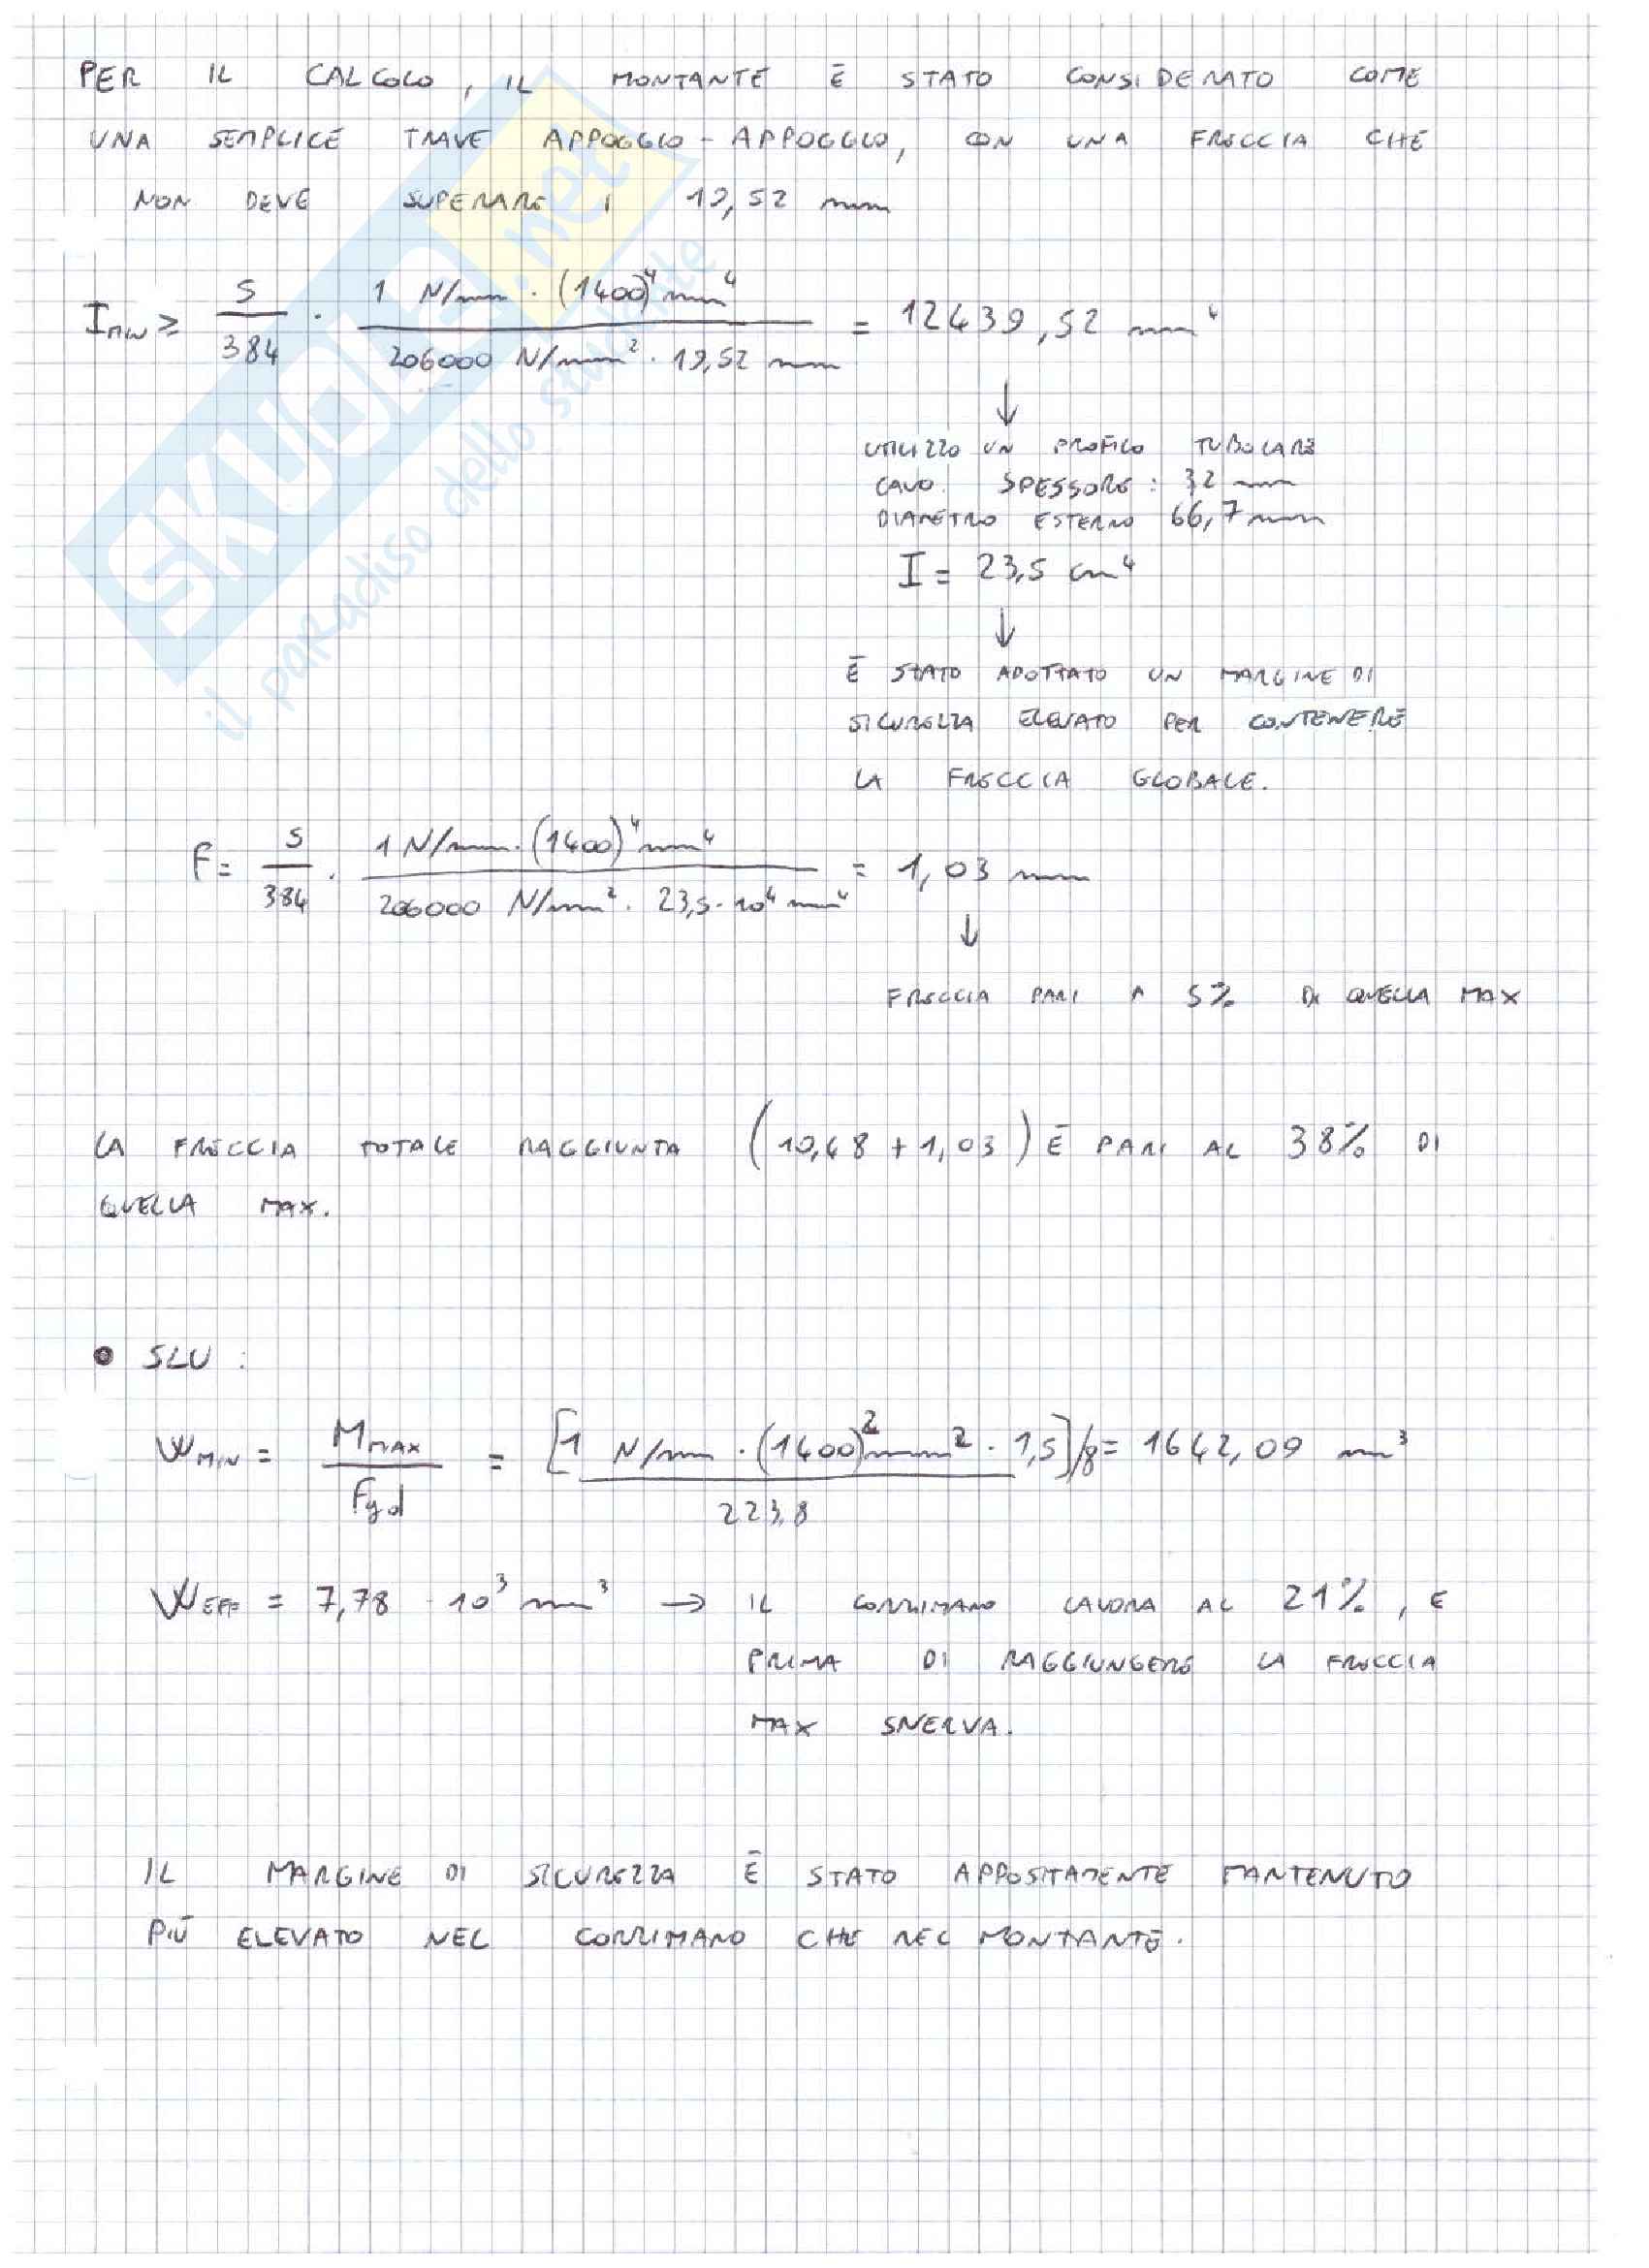 PER IL CALCOLO, IL MONTANTE È STATO CONSIDERATO COME
UNA SEMPLICE TRAVE APPOGGIO-APPOGGIO, CON UNA FRECCIA CHE
NON DEVE SUPERARE I 19,52 mm
I_MIN ≥ 5/384 · (1 N/mm · (1400)⁴ mm⁴)/(206000 N/mm² · 19,52 mm) = 12439,52 mm⁴
↓
UTILIZZO UN PROFILO TUBOLARE
CAVO. SPESSORE: 3,2 mm
DIAMETRO ESTERNO 66,7 mm
I = 23,5 cm⁴
↓
È STATO ADOTTATO UN MARGINE DI
SICUREZZA ELEVATO PER CONTENERE
LA FRECCIA GLOBALE.
F = 5/384 · (1 N/mm · (1400)⁴ mm⁴)/(206000 N/mm² · 23,5 · 10⁴ mm⁴) = 1,03 mm
↓
FRECCIA PARI A 5% DI QUELLA MAX
LA FRECCIA TOTALE RAGGIUNTA (10,48 + 1,03) È PARI AL 38% DI
QUELLA MAX.
• SLU:
W_MIN = M_MAX/Fyd = [1 N/mm · (1400)² mm² · 1,5]/8 = 1642,09 mm³
223,8
W_EFF = 7,78 · 10³ mm³ → IL CORRIMANO LAVORA AL 21%, E
PRIMA DI RAGGIUNGERE LA FRECCIA
MAX SNERVA.
IL MARGINE DI SICUREZZA È STATO APPOSITAMENTE MANTENUTO
PIÙ ELEVATO NEL CORRIMANO CHE NEL MONTANTE.
SKUOLA.net
il paradiso dello studente